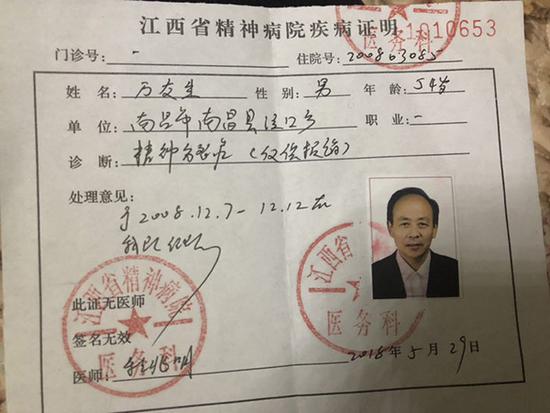 江西省精神病院疾病证明
1010653
医务科
门诊号: - 住院号: 200863085
姓 名: 万友生 性 别: 男 年 龄: 54岁
单 位: 南昌市南昌县泾口乡 职 业: -
诊 断: 精神分裂症 (仅供报销)
处理意见:
于2008.12.7-12.12在
我院
江西省精神病院
医务科
江西省
医务科
此证无医师
签名无效
医师:
2018年5月29日